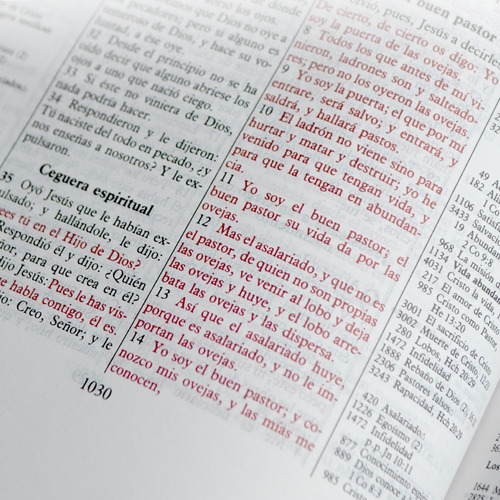 pecadores; pero si alguno es
temeroso de Dios, y hace su vo-
luntad, a ése oye.
32 Desde el principio no se ha
oído decir que alguno abriese los
ojos a uno que nació ciego.
33 Si éste no viniera de Dios,
nada podría hacer.
34 Respondieron y le dijeron:
Tú naciste del todo en pecado, ¿y
nos enseñas a nosotros? Y le ex-
pulsaron.
Ceguera espiritual
35 Oyó Jesús que le habían ex-
pulsado; y hallándole, le dijo:
¿Crees tú en el Hijo de Dios?
Respondió él y dijo: ¿Quién
Señor, para que crea en él?
dijo Jesús: Pues le has vis-
te habla contigo, él es.
dijo: Creo, Señor; y le
1030
buen pastor
vió, pues, Jesús a decirle
De cierto, de cierto os digo: Yo
soy la puerta de las ovejas.
8 Todos los que antes de mí vi-
nieron, ladrones son y salteado-
res; pero no los oyeron las ovejas.
9 Yo soy la puerta; el que por mí
entrare, será salvo; y entrará, y
saldrá, y hallará pastos.
10 El ladrón no viene sino para
hurtar y matar y destruir; yo he
venido para que tengan vida, y
para que la tengan en abundan-
cia.
11 Yo soy el buen pastor; el
buen pastor su vida da por las
ovejas.
12 Mas el asalariado, y que no es
el pastor, de quien no son propias
las ovejas, ve venir al lobo y deja
las ovejas y huye, y el lobo arre-
bata las ovejas y las dispersa.
13 Así que el asalariado huye,
porque es asalariado, y no le im-
portan las ovejas.
14 Yo soy el buen pastor; y co-
nozco mis ovejas, y las mías me
conocen,
1106 Satisfa
3433 Salvac
19 Abundan
2 Co 9:8
968 La misión de
1134 Vida abund
4031 Cristo la vida,
212 El amor de Cr
985 Cristo como Pastor,
He 13:20
3001 Muerte de Cristo
3002 Sacrificio de Cristo
280 Lobos, Hch 20:29
1472 Infidelidad
1888 Rebaño de Dios (2)
2330 Pastores falsos
3243 Rapacidad, Hch 20:29
420 Asalariado
1226 Egoísmo (2)
1472 Infidelidad
p.p. Jn 10:11
877 Conocimiento
889 Dios conoce
1 Co 8:3
985 Cristo